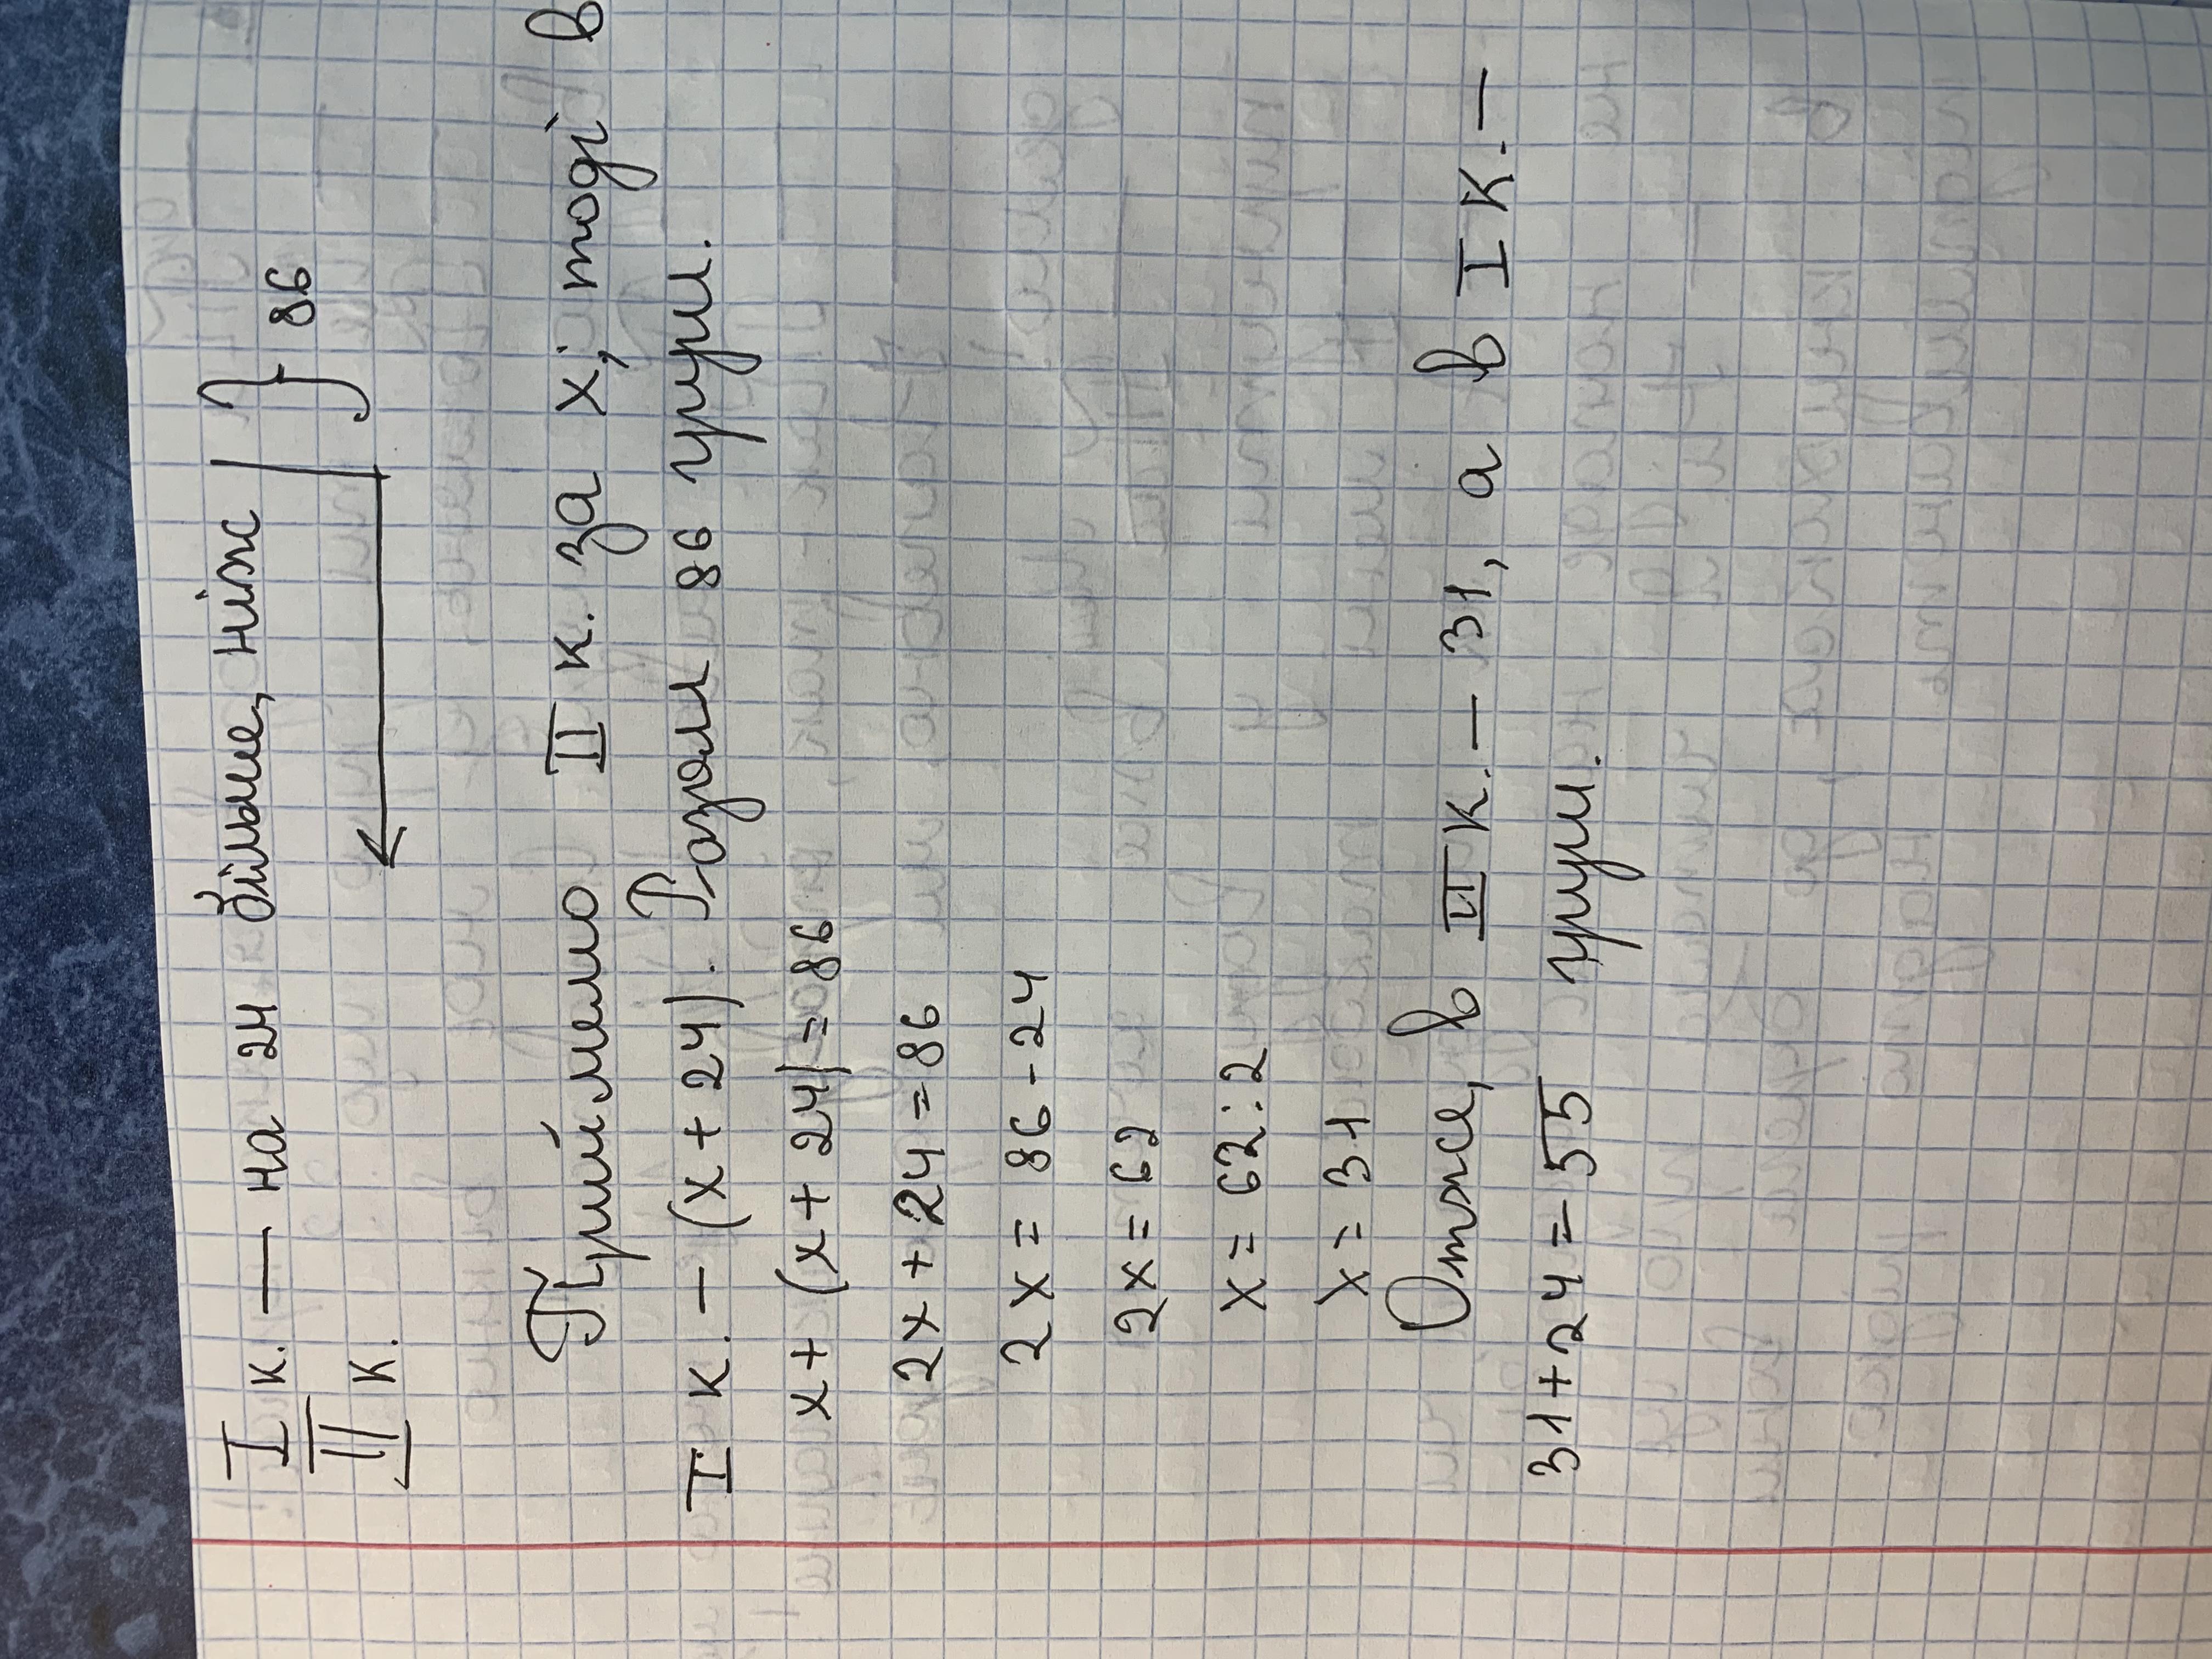 I к. — на 24 більше, ніж } 86
II к.
Приймемо II к. за х, тоді в
I к. – (х + 24). Разом 86 груш.
х + (х + 24) = 86
2х + 24 = 86
2х = 86 - 24
2х = 62
х = 62 : 2
х = 31
Отже, в II к. – 31, а в I к. –
31 + 24 = 55 груш.